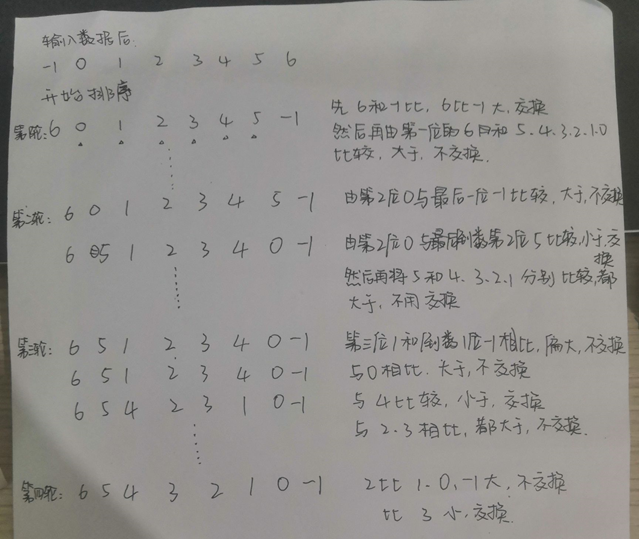 输入数据后:
-1 0 1 2 3 4 5 6
开始排序
第一轮: 6 0 1 2 3 4 5 -1 先6和-1比, 6比-1大, 交换
然后再由第一位的6和5.4.3.2.1.0
比较, 大于, 不交换.
第二轮: 6 0 1 2 3 4 5 -1 由第2位0与最后一位-1比较, 大于, 不交换
6 5 1 2 3 4 0 -1 由第2位0与倒数第2位5比较, 小于, 交换
然后再将5和4.3.2.1分别比较, 都
大于, 不用交换
第三轮: 6 5 1 2 3 4 0 -1 第三位1和倒数1位-1相比, 偏大, 不交换
6 5 1 2 3 4 0 -1 与0相比. 大于, 不交换
6 5 4 2 3 1 0 -1 与4比较, 小于, 交换
与2.3相比, 都大于, 不交换.
第四轮: 6 5 4 3 2 1 0 -1 2比1.0,-1大, 不交换
比3小, 交换.